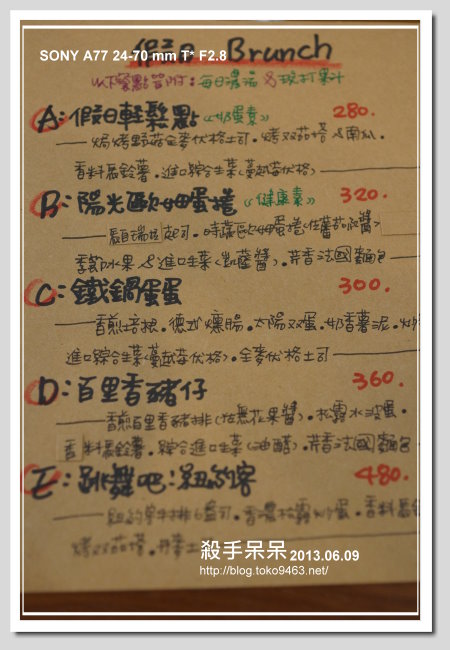 假日 Brunch
SONY A77 24-70 mm T* F2.8
以下餐點皆附：每日濃湯 &現打果汁
A：假日輕鬆點 《奶蛋素》 280.
焗烤野菇全麥伏格土司．烤双茄塔&南瓜．
香料馬鈴薯．進口綜合生菜(蔓越莓优格)
B：陽光歐姆蛋捲 《健康素》 320.
顧瑞起司．時蔬歐姆蛋捲(佐蕃茄醬)
季節水果&進口生菜(凱薩醬)．芹香法國麵包
C：鐵鍋蛋蛋 300.
香煎培根．德式爌腸．太陽双蛋．奶香薯泥．
進口綜合生菜(蔓越莓优格)．全麥伏格土司
D：百里香豬仔 360.
香煎百里香豬排(佐無花果醬)．松露水波蛋．
香料馬鈴薯．綜合進口生菜(油醋)．芹香法國麵包
E：跳舞吧！紐約客 480.
紐約客牛排6盎司．香濃松露炒蛋．香料馬鈴
烤双茄塔．
殺手呆呆 2013.06.09
http://blog.toko9463.net/